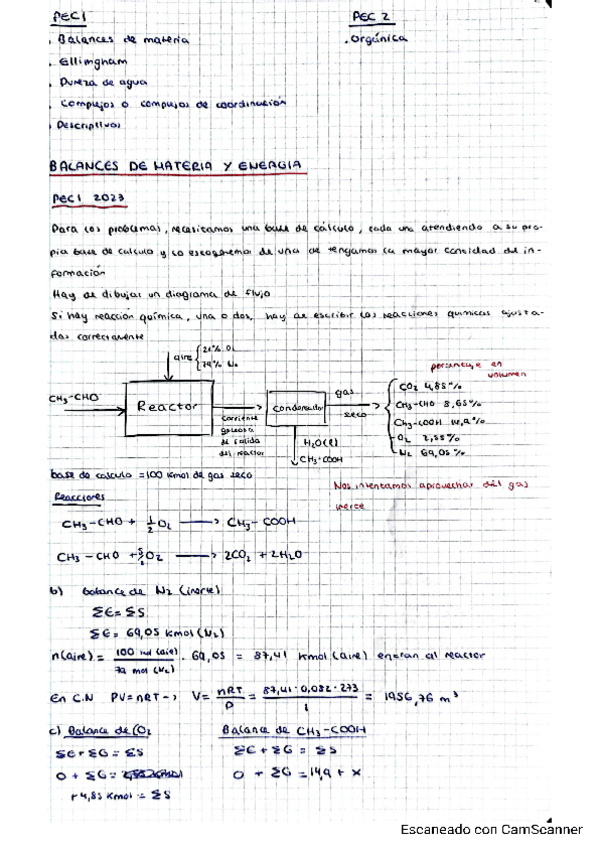 PEC1
PEC 2
. Balances de materia
. Orgánica
. Ellimgham
. Dureza de agua
. Complejos o compujos de coordinación
. Descriptivos
BALANCES DE MATERIA Y ENERGIA
PEC1 2023
Para los problemas, necesitamos una base de cálculo, cada uno atendiendo a su pro-
pia base de calculo y lo escogeremos de una de tengamos la mayor cantidad de in-
formación
Hay de dibujar un diagrama de flujo
Si hay reacción química, una o dos, hay de escribir las reacciones quimicas ajusta-
das correctamente
aire
21% O2
79% N2
porcentaje en
volumen
CH3-CHO
Reactor
Condensador
gas
seco
CO2 4,85%
CH3-CHO 8,65%
CH3-COOH 14,9%
O2 2,55%
N2 69,05%
corriente
gaseosa
de salida
del reactor
H2O(l)
CH3-COOH
base de calculo = 100 Kmol de gas seco
Nos intentamos aprovechar del gas
inerte
Reacciones
CH3-CHO + 1/2 O2 → CH3-COOH
CH3-CHO + 5/2 O2 → 2CO2 + 2H2O
b) balance de N2 (inerte)
ΣE = ΣS
ΣE = 69,05 Kmol (N2)
n(aire) = 100 mol (aire) / 79 mol (N2) · 69,05 = 87,41 Kmol (aire) entran al reactor
En C.N PV = nRT → V = nRT / P = 87,41 · 0,082 · 273 / 1 = 1956,76 m³
c) Balance de CO2
Balance de CH3-COOH
ΣE + ΣG = ΣS
ΣE + ΣG = ΣS
0 + ΣG =
0 + ΣG = 14,9 + x
+ 4,85 Kmol = ΣS
Escaneado con CamScanner